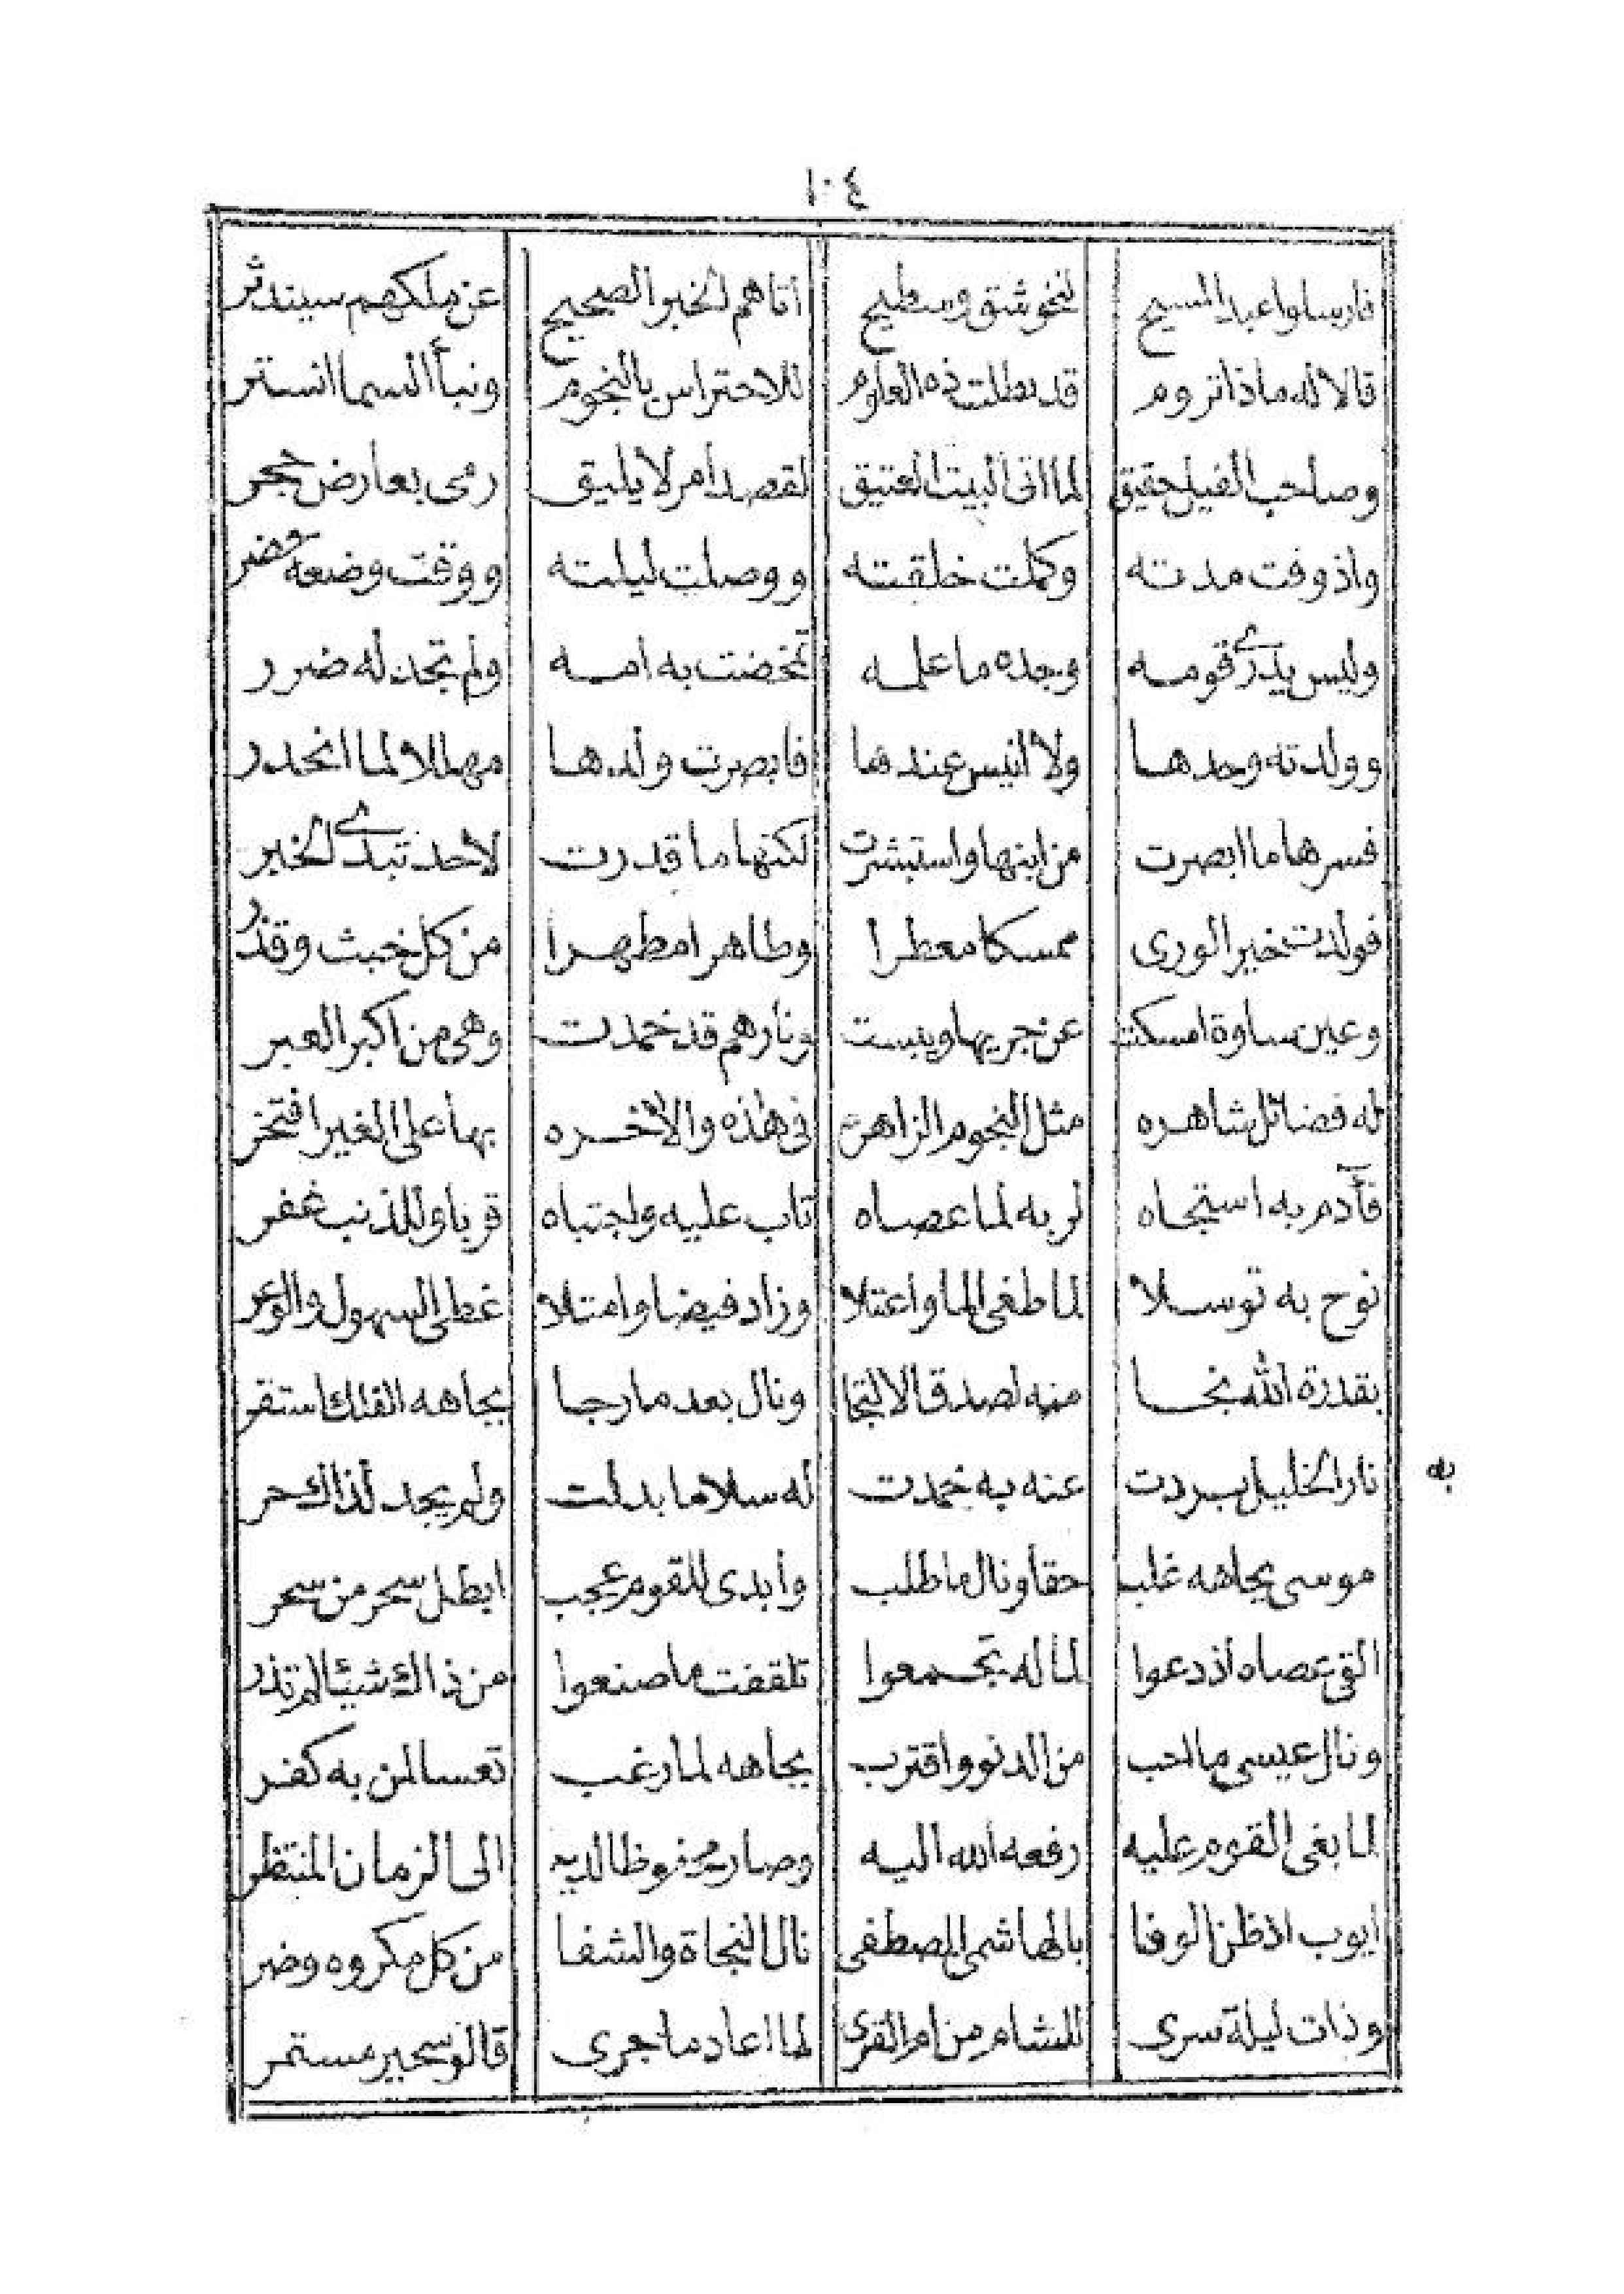 ١٠٤
فارسلوا عبد المسيح لنحو شق وسطيح أتاهم الخبر الصحيح عن ملكهم سيندثر
قالا له ماذا تروم قد بطلت ذه العلوم للاحتراس بالنجوم ونبأ السما انستر
وصاحب الفيل حقيق لما اتى البيت العتيق لقصد أمر لا يليق رمى بعارض حجر
واذ وفت مدته وكملت خلقته ووصلت ليلته ووقت وضعه حضر
وليس يدرى قومه وجده ما علمه تمخضت به امه ولم تجد له ضرر
وولدته وحدها ولا أنيس عندها فابصرت ولدها مهللا لما انحدر
فسرها ما ابصرت من ابنها واستبشرت لكنها ما قدرت لأحد تبدى الخبر
فولدت خير الورى ممسكا معطرا وطاهرا مطهرا من كل خبث وقذر
وعين ساوة امسكت عن جريها ويبست ونارهم قد خمدت وهى من اكبر العبر
له فضائل شاهره مثل النجوم الزاهرة فى هذه والآخره بها على الغير افتخر
فآدم به استجاه لربه لما عصاه تاب عليه واجتباه قربا وللذنب غفر
نوح به توسلا لما طغى الما واعتلا وزاد فيضا وامتلا غطى السهول والوعر
بقدرة الله نجا منه لصدق الالتجا ونال بعد ما رجا بجاهه الفلك استقر
نار الخليل بردت عنه به خمدت له سلاما بدلت ولم يجد لذاك حر
به
موسى بجاهه غلب حقا ونال ما طلب وأبدى للقوم عجب ابطل سحر من سحر
القى عصاه اذ دعوا لما له تجمعوا تلقفت ما صنعوا من ذاك شيئا لم تذر
ونال عيسى ما احب من الدنو واقترب بجاهه لما رغب تعسا لمن به كفر
لما بغى القوم عليه رفعه الله اليه وصار محفوظا لديه الى الزمان المنتظر
ايوب اذ ظن الوفا بالهاشمى المصطفى نال النجاة والشفا من كل مكروه وضر
وذات ليلة سرى للشام من ام القرى لما اعاد ما جرى قالو سحير مستمر